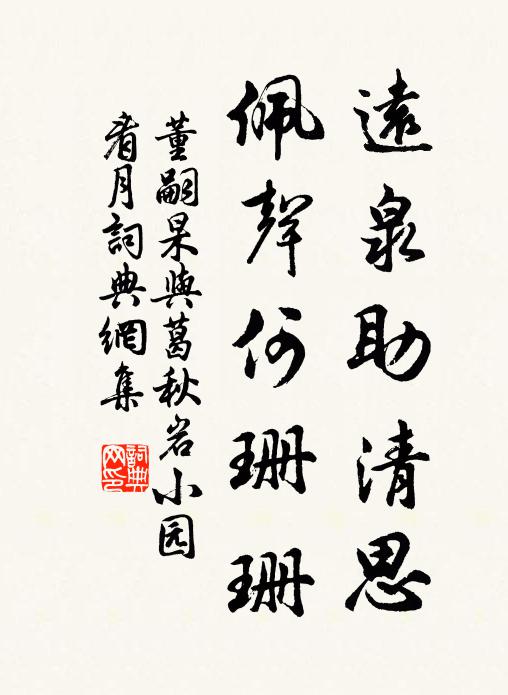 遠泉助清思
佩聲何珊珊
董嗣杲與葛秋岩小园
看月詞典網集
詞典
网印